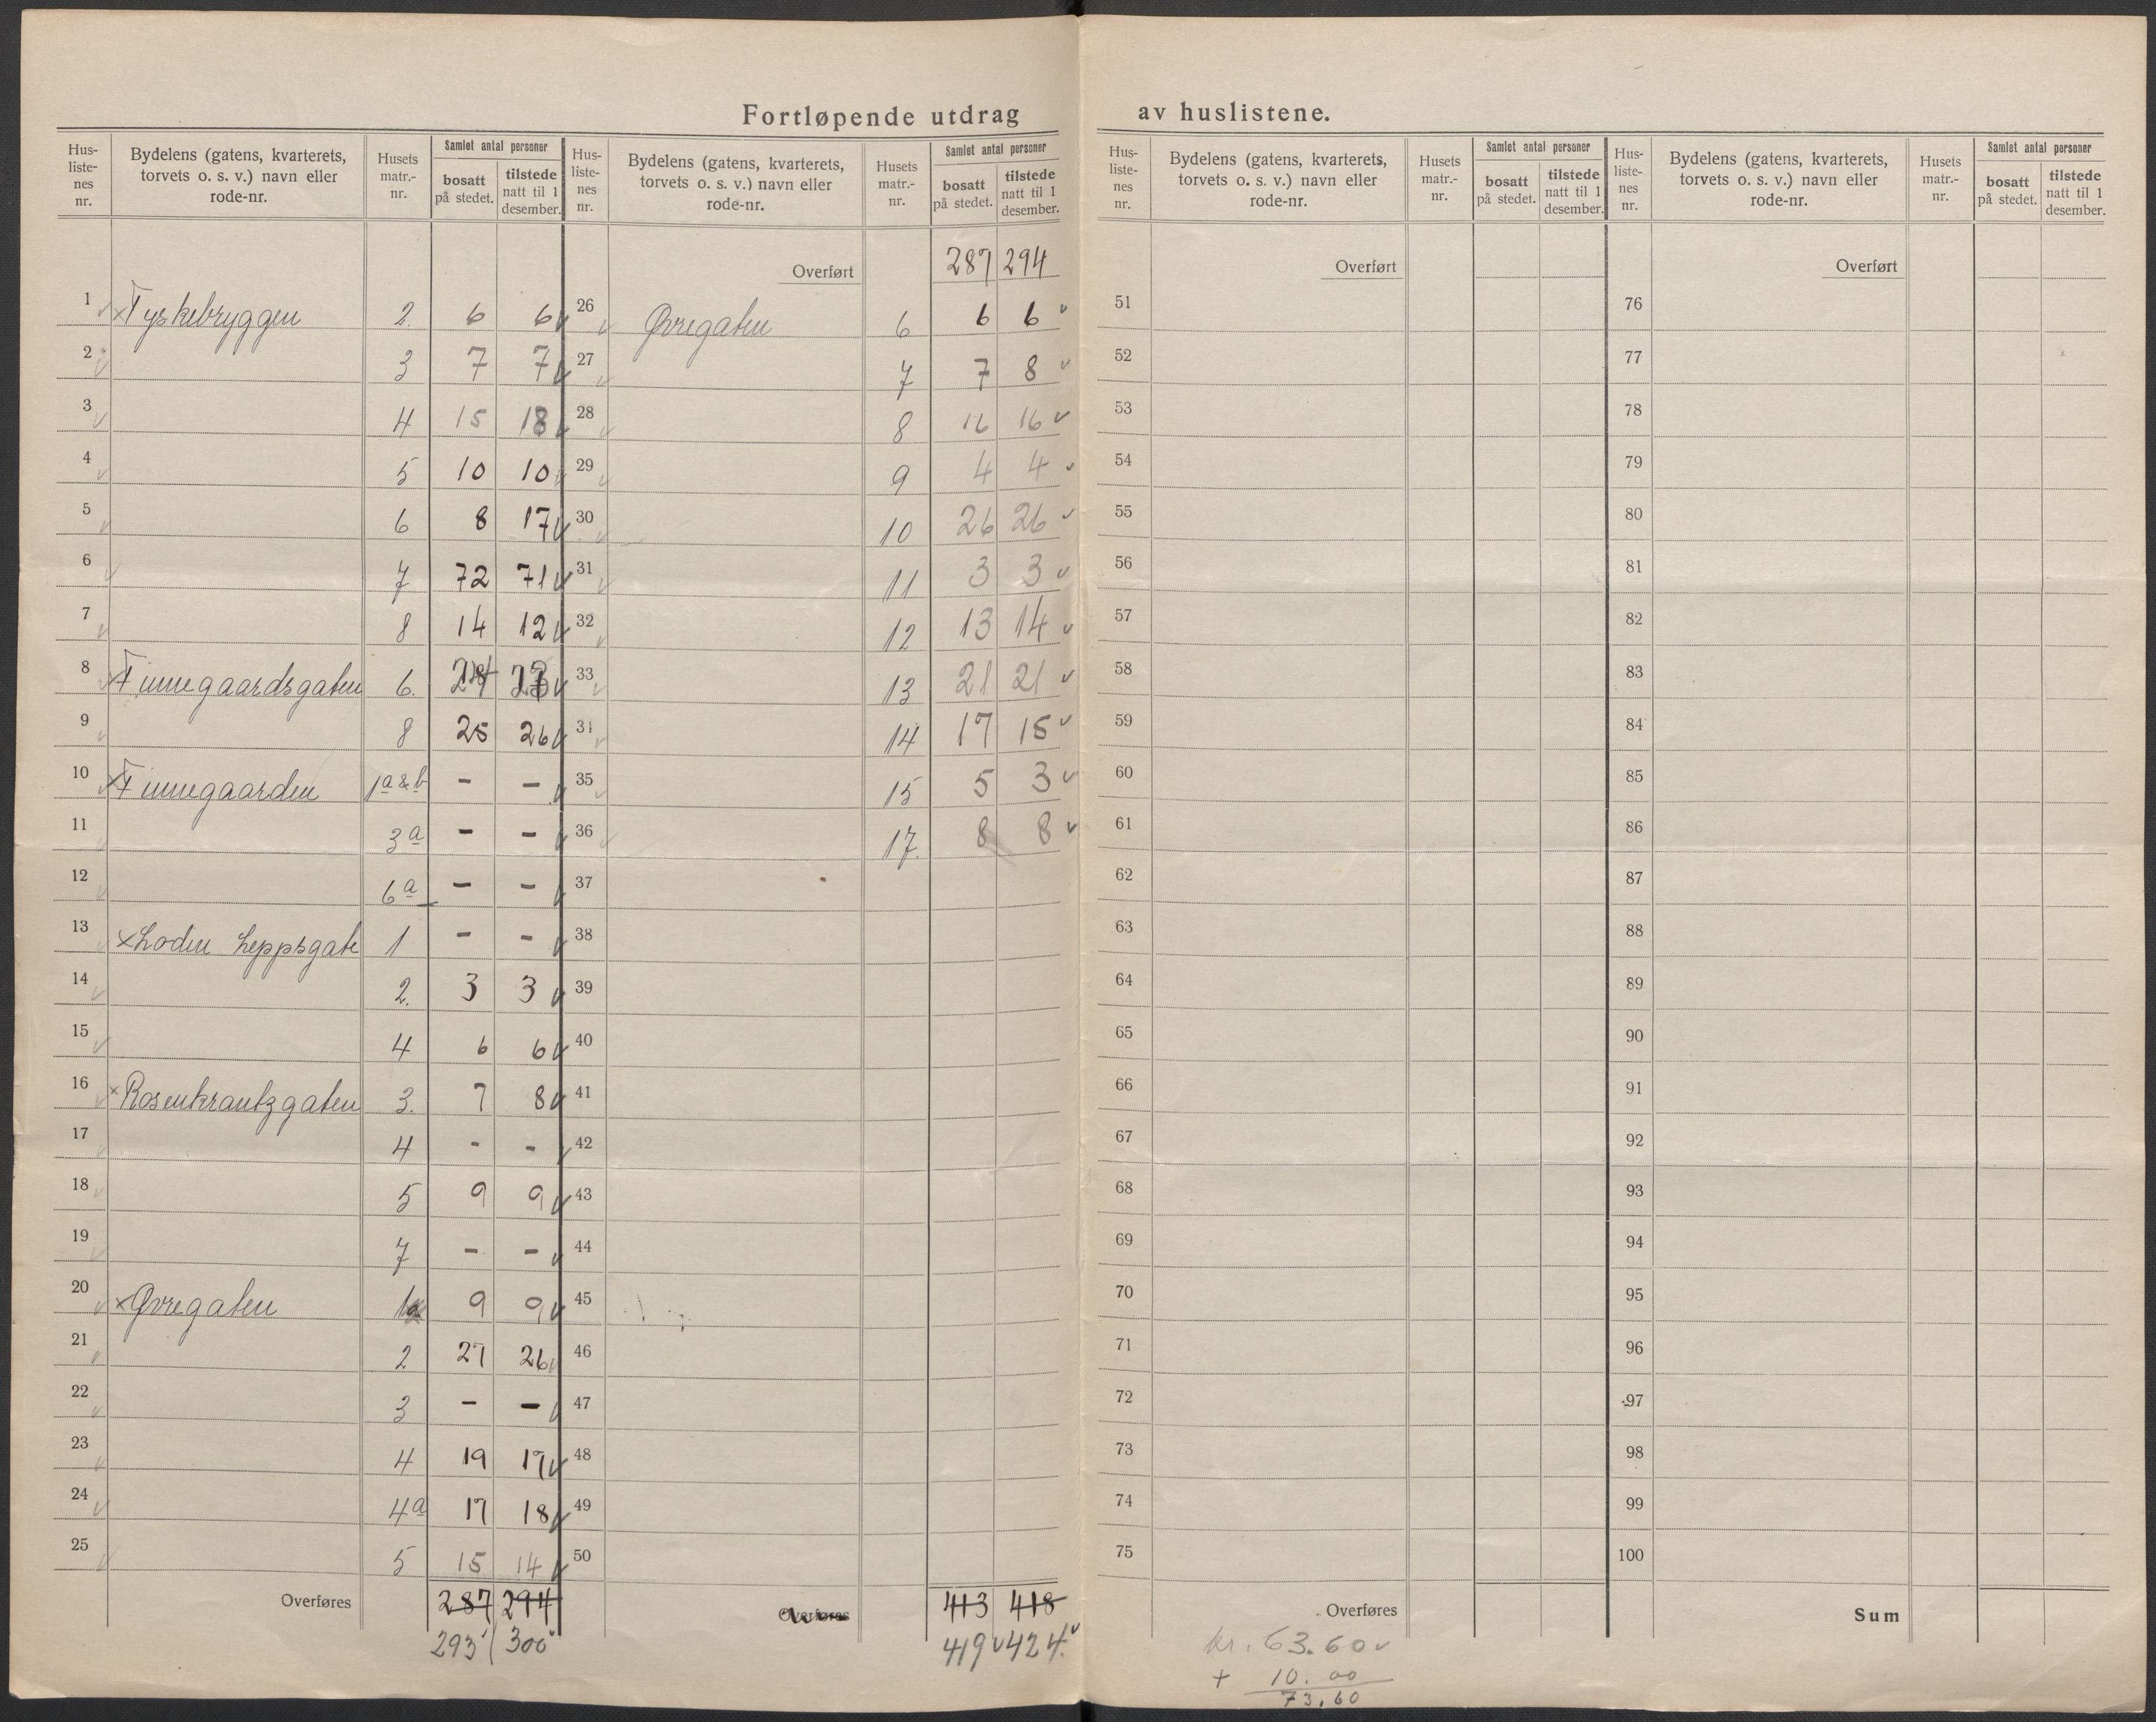 Fortløpende utdrag av huslistene.
Hus-listenes nr. | Bydelens (gatens, kvarterets, torvets o. s. v.) navn eller rode-nr. | Husets matr.-nr. | Samlet antal personer | bosatt på stedet. | tilstede natt til 1 desember.
1 Tyskebryggen 2. 6 6
2 3 7 7
3 4 15 18
4 5 10 10
5 6 8 17
6 7 72 71
7 8 14 12
8 Finnegaardsgaten 6.
9 8 25 26
10 Finnegaarden 1a & b - -
11 3a - -
12 6a - -
13 Lodin Leppsgate 1 - -
14 2. 3 3
15 4 6 6
16 Rosenkrantzgaten 3. 7 8
17 4 - -
18 5 9 9
19 7 - -
20 Øvregaten 9 9
21 2 27 26
22 3 - -
23 4 19 17
24 4a 17 18
25 5 15 14
Overføres 287 294
293 300
Hus-listenes nr. | Bydelens (gatens, kvarterets, torvets o. s. v.) navn eller rode-nr. | Husets matr.-nr. | Samlet antal personer | bosatt på stedet. | tilstede natt til 1 desember.
Overført 287 294
26 Øvregaten 6 6 6
27 7 7 8
28 8 16 16
29 9 4 4
30 10 26 26
31 11 3 3
32 12 13 14
33 13 21 21
34 14 17 15
35 15 5 3
36 17. 8 8
37
38
39
40
41
42
43
44
45
46
47
48
49
50
Overføres 413 418
419 424.
Hus-listenes nr. | Bydelens (gatens, kvarterets, torvets o. s. v.) navn eller rode-nr. | Husets matr.-nr. | Samlet antal personer | bosatt på stedet. | tilstede natt til 1 desember.
Overført
51
52
53
54
55
56
57
58
59
60
61
62
63
64
65
66
67
68
69
70
71
72
73
74
75
Overføres
kr. 63.60
+ 10.00
73,60
Hus-listenes nr. | Bydelens (gatens, kvarterets, torvets o. s. v.) navn eller rode-nr. | Husets matr.-nr. | Samlet antal personer | bosatt på stedet. | tilstede natt til 1 desember.
Overført
76
77
78
79
80
81
82
83
84
85
86
87
88
89
90
91
92
93
94
95
96
97
98
99
100
Sum